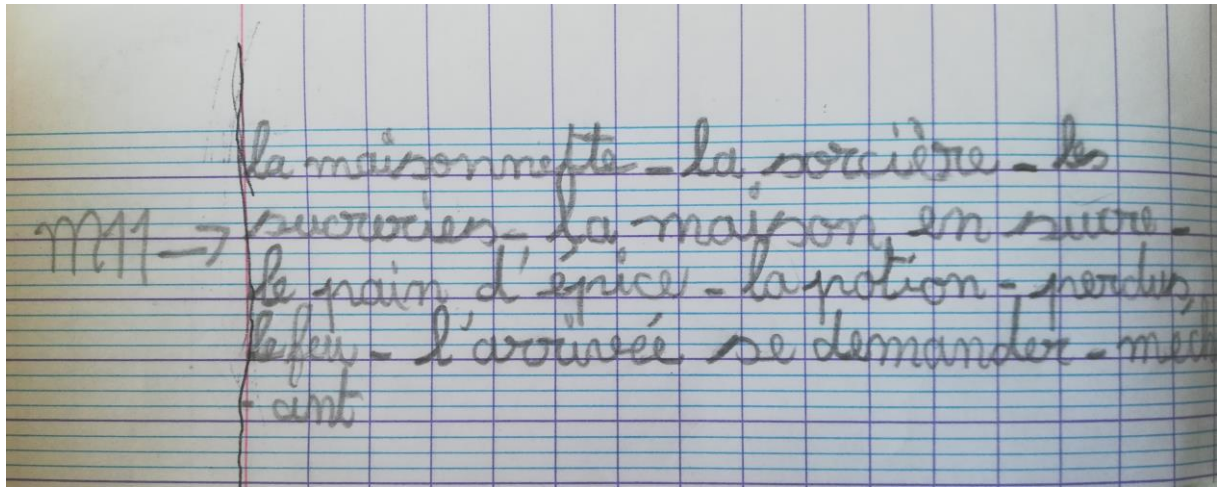 la maisonnette - la sorcière - les
M11 → sucreries - la maison en sucre -
le pain d'épice - la potion - perdus,
le feu - l'arrivée se demander - méch
- ant